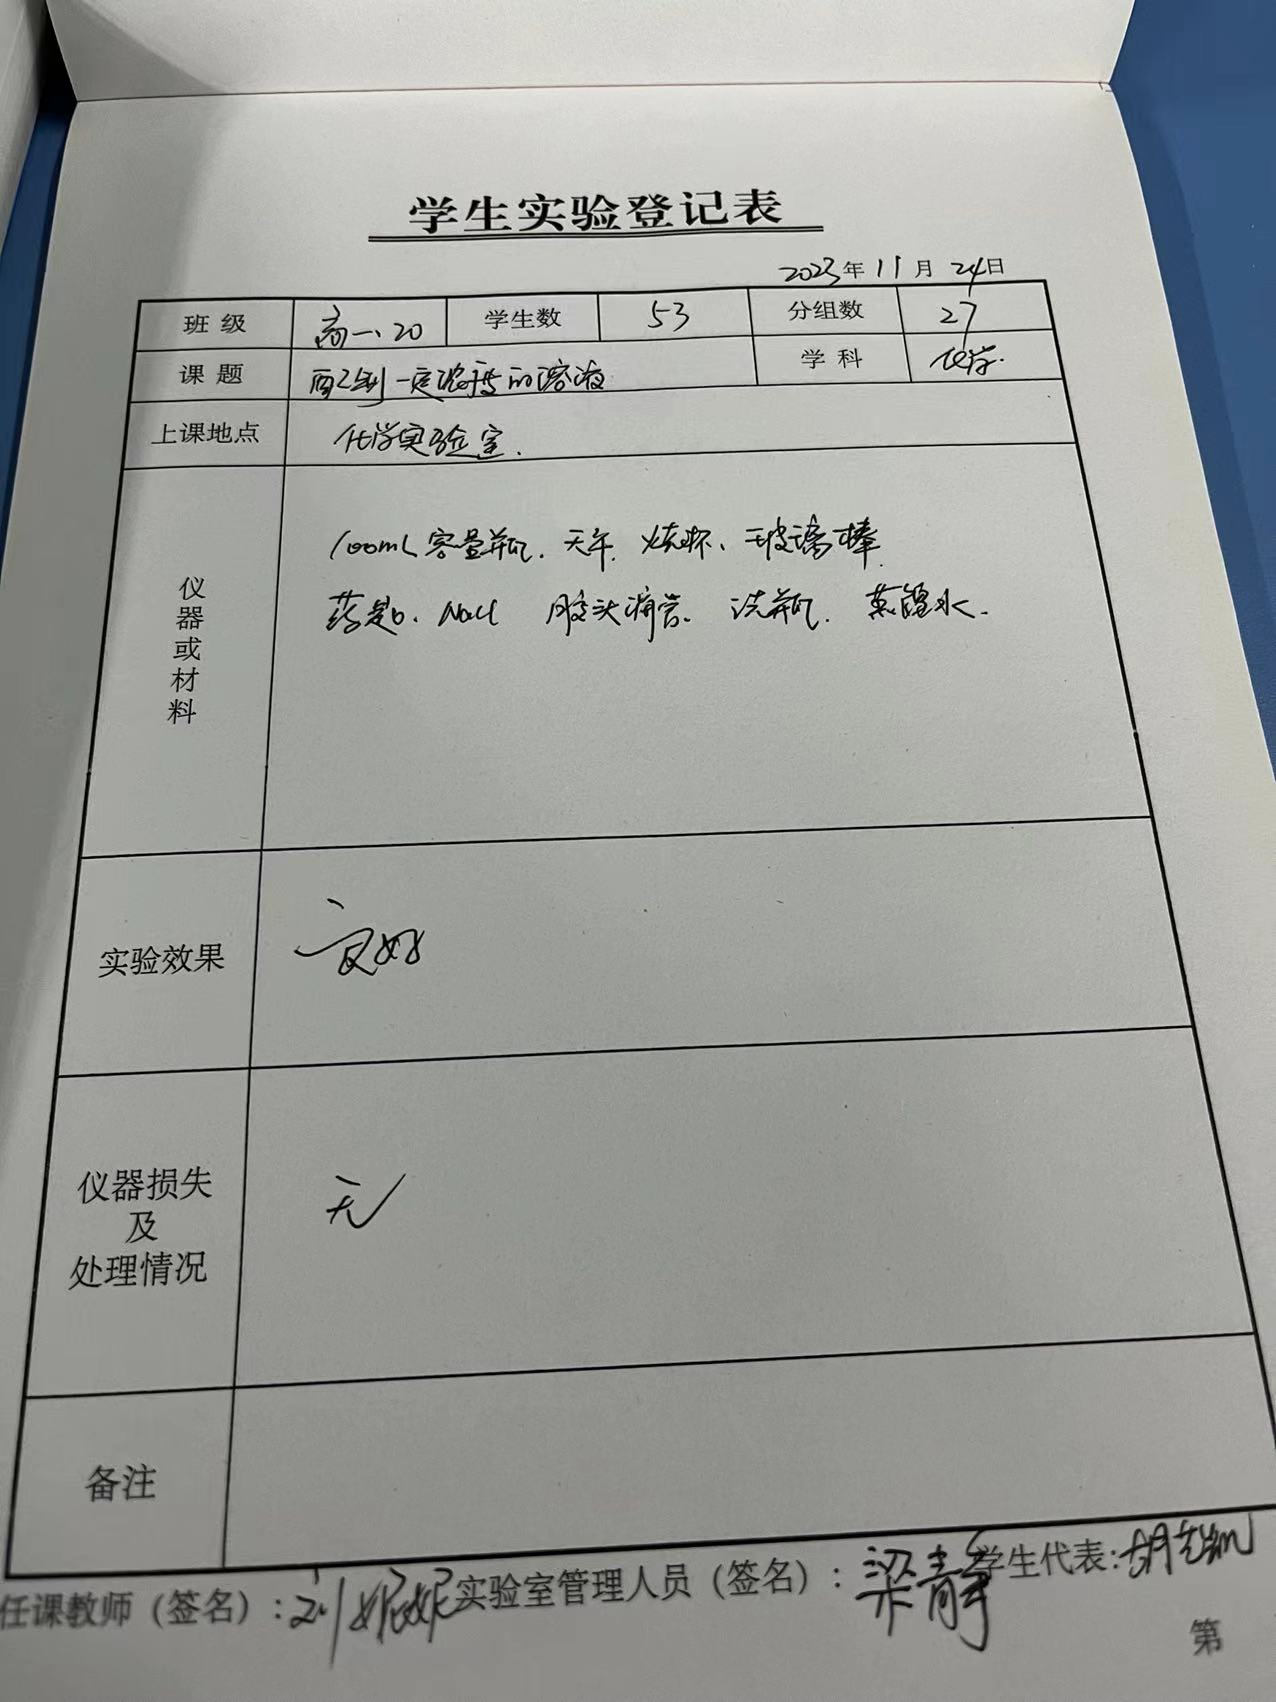 学生实验登记表
2023年11月24日
班级 高一、20 学生数 53 分组数 27
课题 配制一定浓度的溶液 学科 化学.
上课地点 化学实验室.
仪器或材料
100mL容量瓶. 天平. 烧杯、玻璃棒
药匙. NaCl 胶头滴管. 洗瓶. 蒸馏水.
实验效果 良好
仪器损失
及
处理情况
无
备注
任课教师（签名）: 刘妮妮 实验室管理人员（签名）: 梁静 学生代表: 胡
第